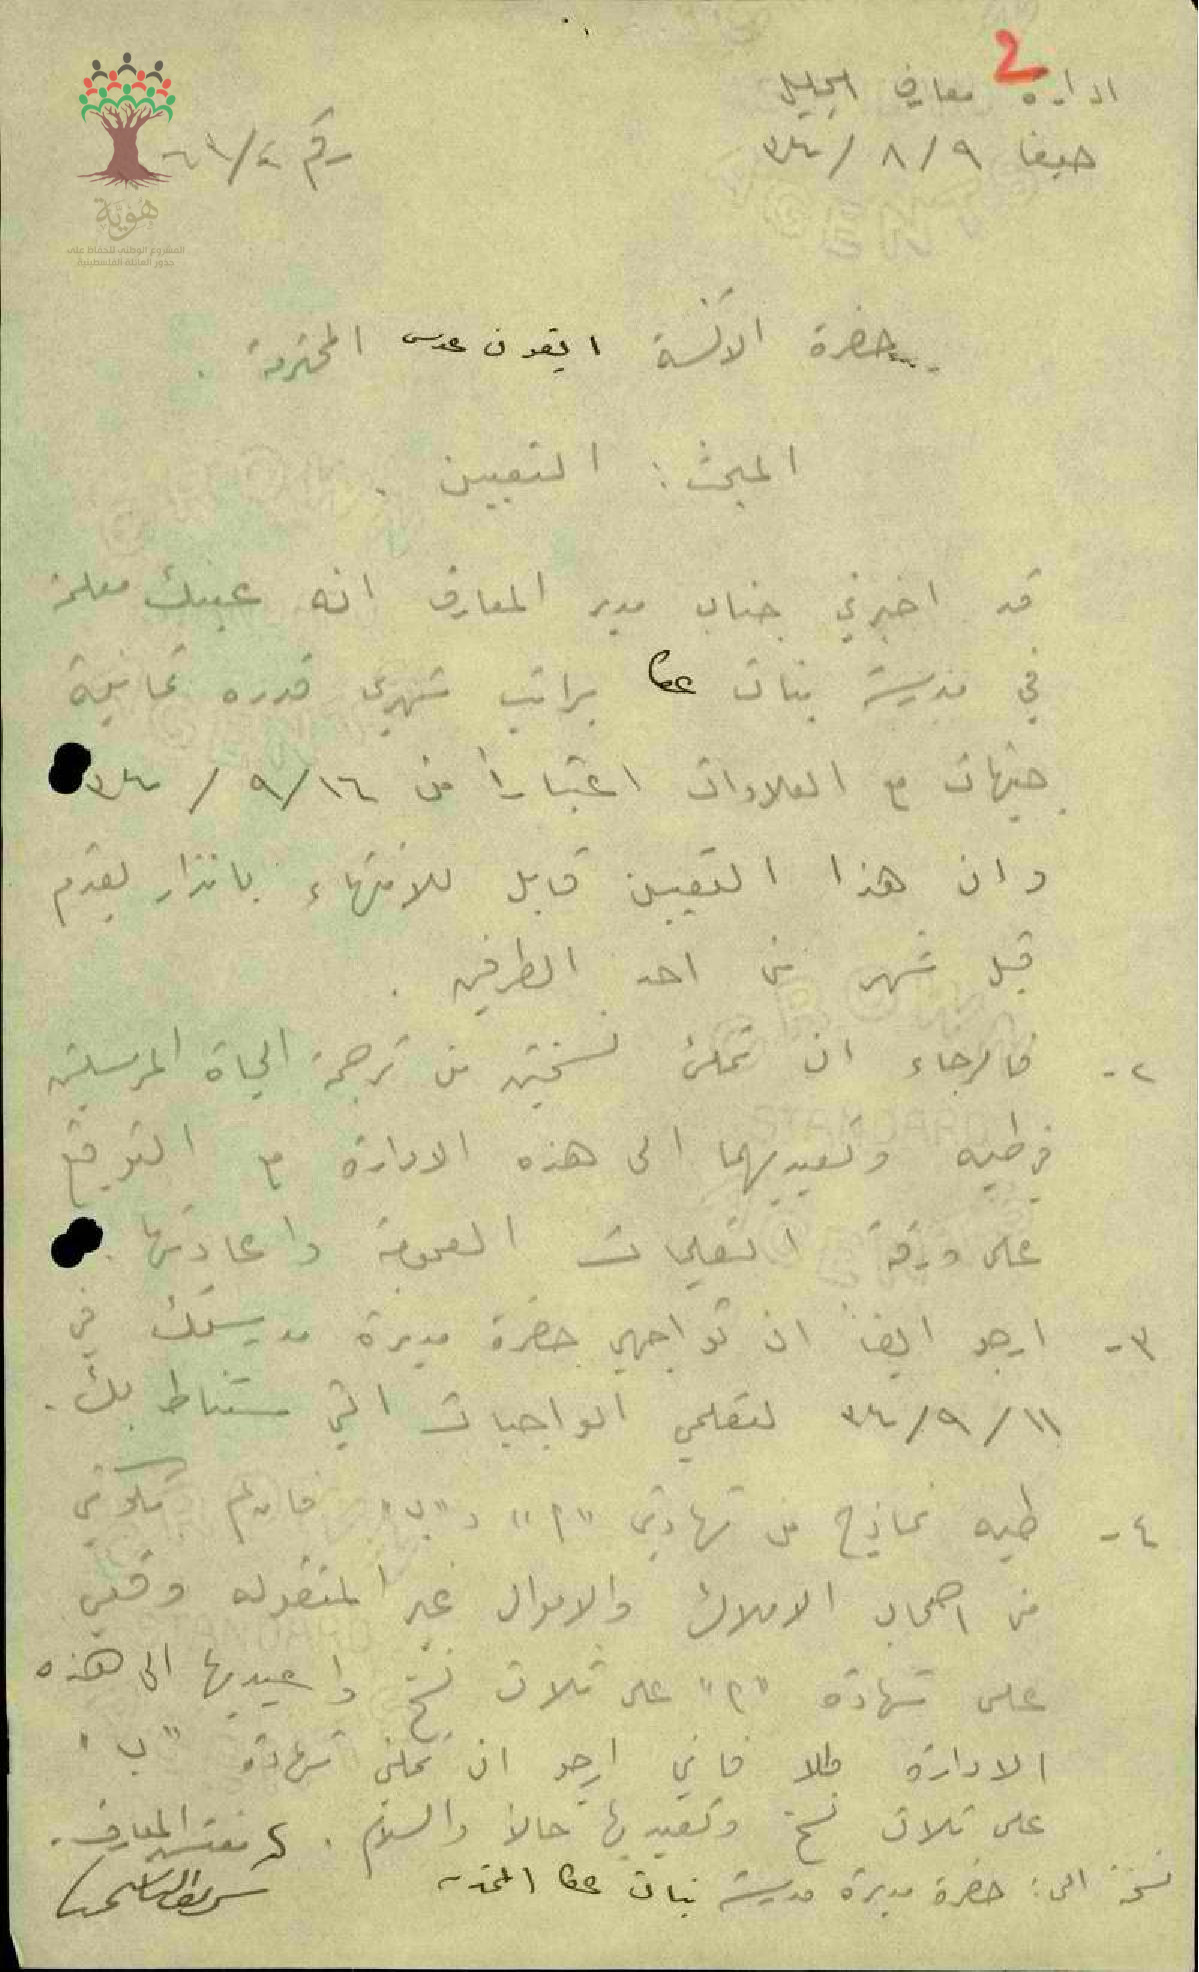 2
ادارة معارف الجليل
حيفا ٩/٨/
رقم
هوية
المشروع الوطني للحفاظ على
جذور العائلة الفلسطينية
حضرة الآنسة المحترمة .
المبحث : التعيين .
قد اخبرني جناب مدير المعارف انه عينك معلمة
في مدرسة بنات عكا براتب شهري قدره ثمانية
جنيهات مع العلاوات اعتباراً من ١٦/٩/
وان هذا التعيين قابل للانتهاء بانذار يقدم
قبل شهر من احد الطرفين .
٢- فالرجاء ان تملئي نسختين من ترجمة الحياة المرسلتين
في طيه وتعيديهما الى هذه الادارة مع التوقيع
على ورقة التعليمات العمومية واعادتها .
٣- ارجو ايضاً ان تواجهي حضرة مديرة مدرستك في
١١/٩/ لتعلمي الواجبات التي ستناط بك .
٤- طيه نماذج من شهادتي "أ" و "ب" فان لم تكوني
من اصحاب الاملاك والاموال غير المنقوله وقعي
على شهادة "أ" على ثلاث نسخ واعيديها الى هذه
الادارة والا فاني ارجو ان تملئي شهادة "ب"
على ثلاث نسخ وتعيديها حالاً والسلام .
مفتش المعارف .
نسخة الى : حضرة مديرة مدرسة بنات عكا المحترمة